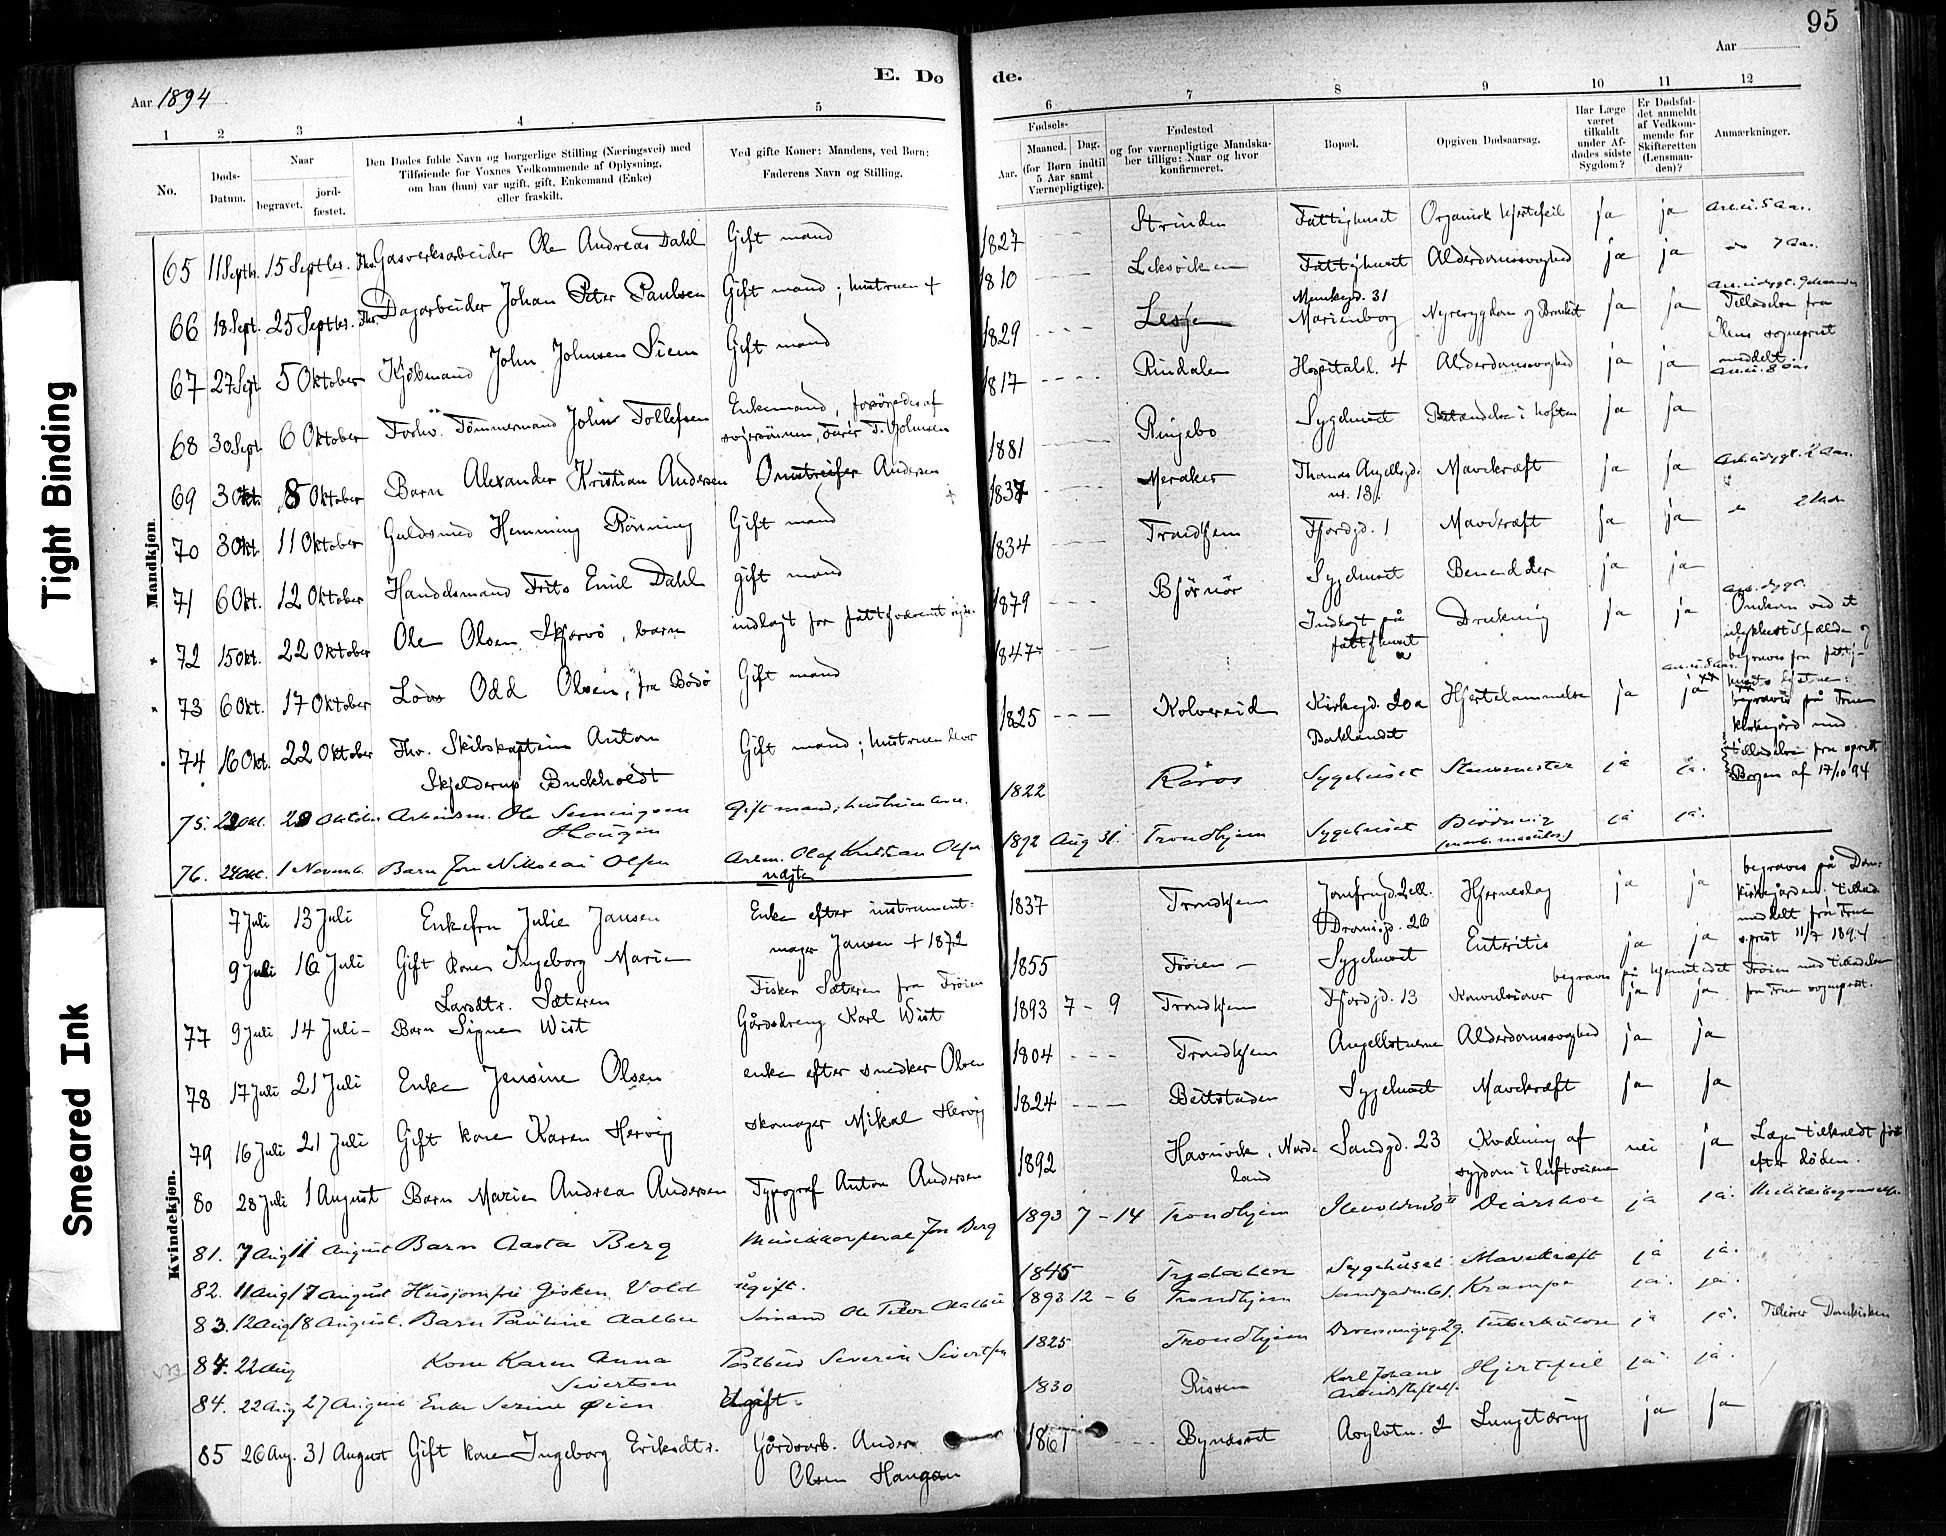 95
Aar
E. Dø
de.
Aar 1894
1 2 3 4 5
6 7 8 9 10 11 12
No.
Døds-Datum.
Naar
begravet.
jord-fæstet.
Den Dødes fulde Navn og borgerlige Stilling (Næringsvei) med
Tilføiende for Voxnes Vedkommende af Oplysning,
om han (hun) var ugift, gift, Enkemand (Enke)
eller fraskilt.
Ved gifte Koner: Mandens, ved Børn:
Faderens Navn og Stilling.
Fødsels-
Aar.
Maaned. Dag.
(for Børn indtil
5 Aar samt
Værnepligtige).
Fødested
og for værnepligtige Mandska-
ber tillige: Naar og hvor
konfirmeret.
Bopæl.
Opgiven Dødsaarsag.
Har Læge
været
tilkaldt
under Af-
dødes sidste
Sygdom?
Er Dødsfal-
det anmeldt
af Vedkom-
mende for
Skifteretten
(Lensman-
den)?
Anmærkninger.
Mandkjøn.
65 11 Septbr. 15 Septbr. Fhv. Gasverksarbeider Ole Andreas Dahl Gift mand 1827 Strinden Fattighuset Organisk hjertefeil ja ja
66 18 Sept. 25 Septbr. Fhv. Dagarbeider Johan Peter Paulsen Gift mand; hustruen + 1810 Leksviken Fattighuset Alderdomssvaghed ja ja
67 27 Sept. 5 Oktober Kjöbmand John Johnsen Siem Gift mand 1829 Lesje Munkegd. 31 Marienborg Nyresygdom og Bronkit ja ja Tilladelse fra Ilens sogneprest meddelt.
68 30 Sept. 6 Oktober Forhv. Tömmermand John Tollefsen Enkemand, forsörgedes af svigersönnen 1817 Rindalen Hospitalsl. 4 Alderdomssvaghed ja ja
69 3 Okt. 8 Oktober Barn Alexander Kristian Andersen Omstreifer Andersen 1881 Ringebo Sygehuset Betændelse i hoften ja ja
70 3 Okt. 11 Oktober Guldsmed Hemming Rönning Gift mand 1837 Meraker Thomas Angellsgd. nr. 13 Mavekræft ja ja
71 6 Okt. 12 Oktober Handelsmand Frits Emil Dahl gift mand 1834 Trondhjem Fjordgd. 1 Mavekræft ja ja
72 15 Okt. 22 Oktober Ole Olsen Skjervö, barn 1879 Björnör Sygehuset Benedder ja ja
73 6 Okt. 17 Oktober Lods Odd Olsen, fra Bodö Gift mand 1847 Indlagt på fattighuset Drukning ja ja Omkom ved et ulykkestilfælde og begraves fra
74 16 Okt. 22 Oktober Fhv. Skibskaptein Anton Skjelderup Buckholdt Gift mand; hustruen lever 1825 Kolvereid Kirkegd. 20a Baklandet Hjertelammelse ja ja begraves på Frue kirkegård med tilladelse fra sprest Bergen af 17/10 94
75. 22 Okt. 28 Oktober Arbeidsm. Ole Semingsen Haugen Gift mand; hustruen lever. 1822 Röros Sygehuset ja ja.
76. 24 Okt. 1 Novemb. Barn Jon Nikolai Olsen Arbm. Olaf Kristian Olsen 1892 Aug 31. Trondhjem Sygehuset ja ja.
Kvindekjøn.
7 Juli 13 Juli Enkefru Julie Jansen Enke efter instrument-mager Jansen + 1872 1837 Trondhjem Hjerneslag ja ja begraves på Dom-kirkegården; tillad. meddelt fra Frue s.prest 11/7 1894
9 Juli 16 Juli Gift kone Ingeborg Marie Larsdtr. Sæteren Fisker Sæteren fra Fröien 1855 Fröien Sygehuset Enteritis ja ja begraves på hjemstedet Fröien med tilladelse fra Frue sogneprest.
77 9 Juli 14 Juli Barn Signe Wist Gårdsdreng Karl Wist 1893 7 - 9 Trondhjem Fjordgd. 13 Konvulsioner ja ja
78 17 Juli 21 Juli Enke Jensine Olsen enke efter snedker Olsen 1804 Trondhjem Angellstuerne Alderdomssvaghed ja ja
79 16 Juli 21 Juli Gift kone Karen Hervig skomager Mikal Hervig 1824 Beitstaden Sygehuset Mavekræft ja ja
80 28 Juli 1 August Barn Marie Andrea Andersen Typograf Anton Andersen 1892 Havnvik, Nordland Sandgd. 23 Kvælning af sygdom i luftveiene nei ja Læge tilkaldt först efter döden.
81. 7 Aug 11 August Barn Aasta Berg Musikkorporal Jon Berg 1893 7 - 14 Trondhjem Diarrhoe ja ja.
82. 11 Aug 17 August Husjomfru Gisken Vold ugift. 1845 Tydalen Sygehuset Mavekræft ja ja.
83. 12 Aug 18 August. Barn Pauline Aalbu Sömand Ole Peter Aalbu 1893 12 - 6 Trondhjem Krampe ja. ja.
84. 22 Aug Kone Karen Anna Sivertsen Postbud Severin Sivertsen 1825 Trondhjem Dronningsg 29. Tuberkulose ja ja. Tilhörer Domkirken
84. 22 Aug 27 August Enke Serine Öien Ugift. 1830 Rissen Karl Johans Hjertefeil ja. ja.
85 26 Aug. 31 August Gift kone Ingeborg Eriksdtr. Gårdsarb. Anders Olsen Haugan 1861 Bynesset Asylstn. 2 Lungetæring ja ja
Tight Binding
Smeared Ink